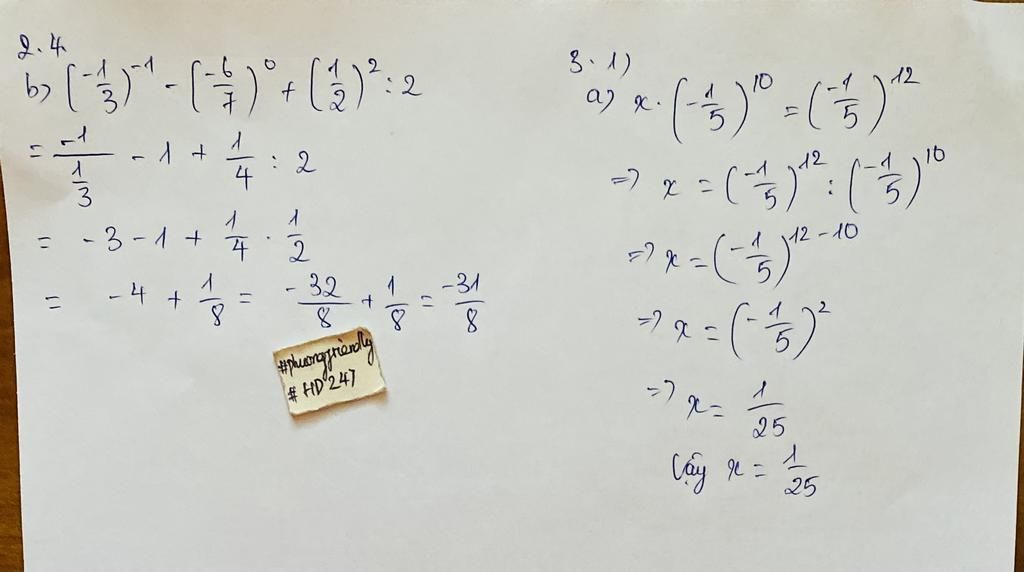 2.4.
b) (-1/3)^-1 - (-6/7)^0 + (1/2)^2 : 2
= -1/(1/3) - 1 + 1/4 : 2
= -3 - 1 + 1/4 . 1/2
= -4 + 1/8 = -32/8 + 1/8 = -31/8
#phuongfriendly
# HD 247
3.1)
a) x . (-1/5)^10 = (-1/5)^12
=> x = (-1/5)^12 : (-1/5)^10
=> x = (-1/5)^12-10
=> x = (-1/5)^2
=> x = 1/25
Vậy x = 1/25